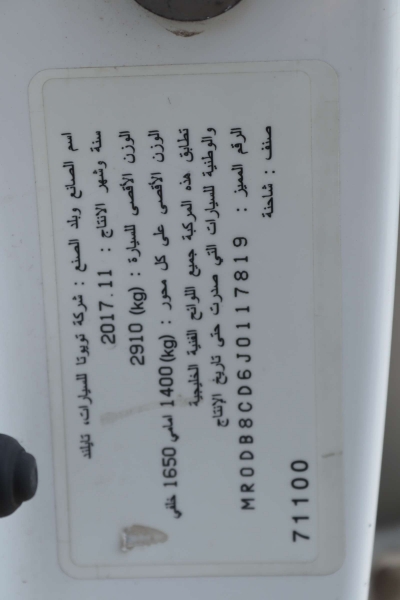 اسم الصانع وبلد الصنع : شركة تويوتا للسيارات، تايلند
سنة وشهر الانتاج : 2017.11
الوزن الأقصى للسيارة : (kg) 2910
الوزن الأقصى على كل محور : (kg)1400 امامي 1650 خلفي
تطابق هذه المركبة جميع اللوائح الفنية الخليجية
والوطنية للسيارات التي صدرت حتى تاريخ الإنتاج
الرقم المميز : MR0DB8CD6J0117819
صنف : شاحنة
71100